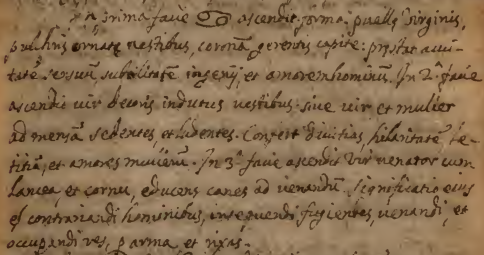 In prima facie ♋ ascendit forma puellę Virginis,
pulchris ornatę vestibus, coronã gerentis capite: pręstat acui-
tatẽ sensuũ, subtilitatẽ ingenij, et amorem hominũ. In 2ª facie
ascendit vir decoris indutus vestibus, sive vir et mulier
ad mensã sedentes et ludentes. Confert divitias, hilaritatẽ, lę-
titiã, et amores mulierũ. In 3ª facie ascendit Vir venator cum
lancea et cornu, educens canes ad venandũ. significatio eius
est contrariandi hominibus, insequendi fugientes, venandi, et
occupandi res, p arma et rixas.